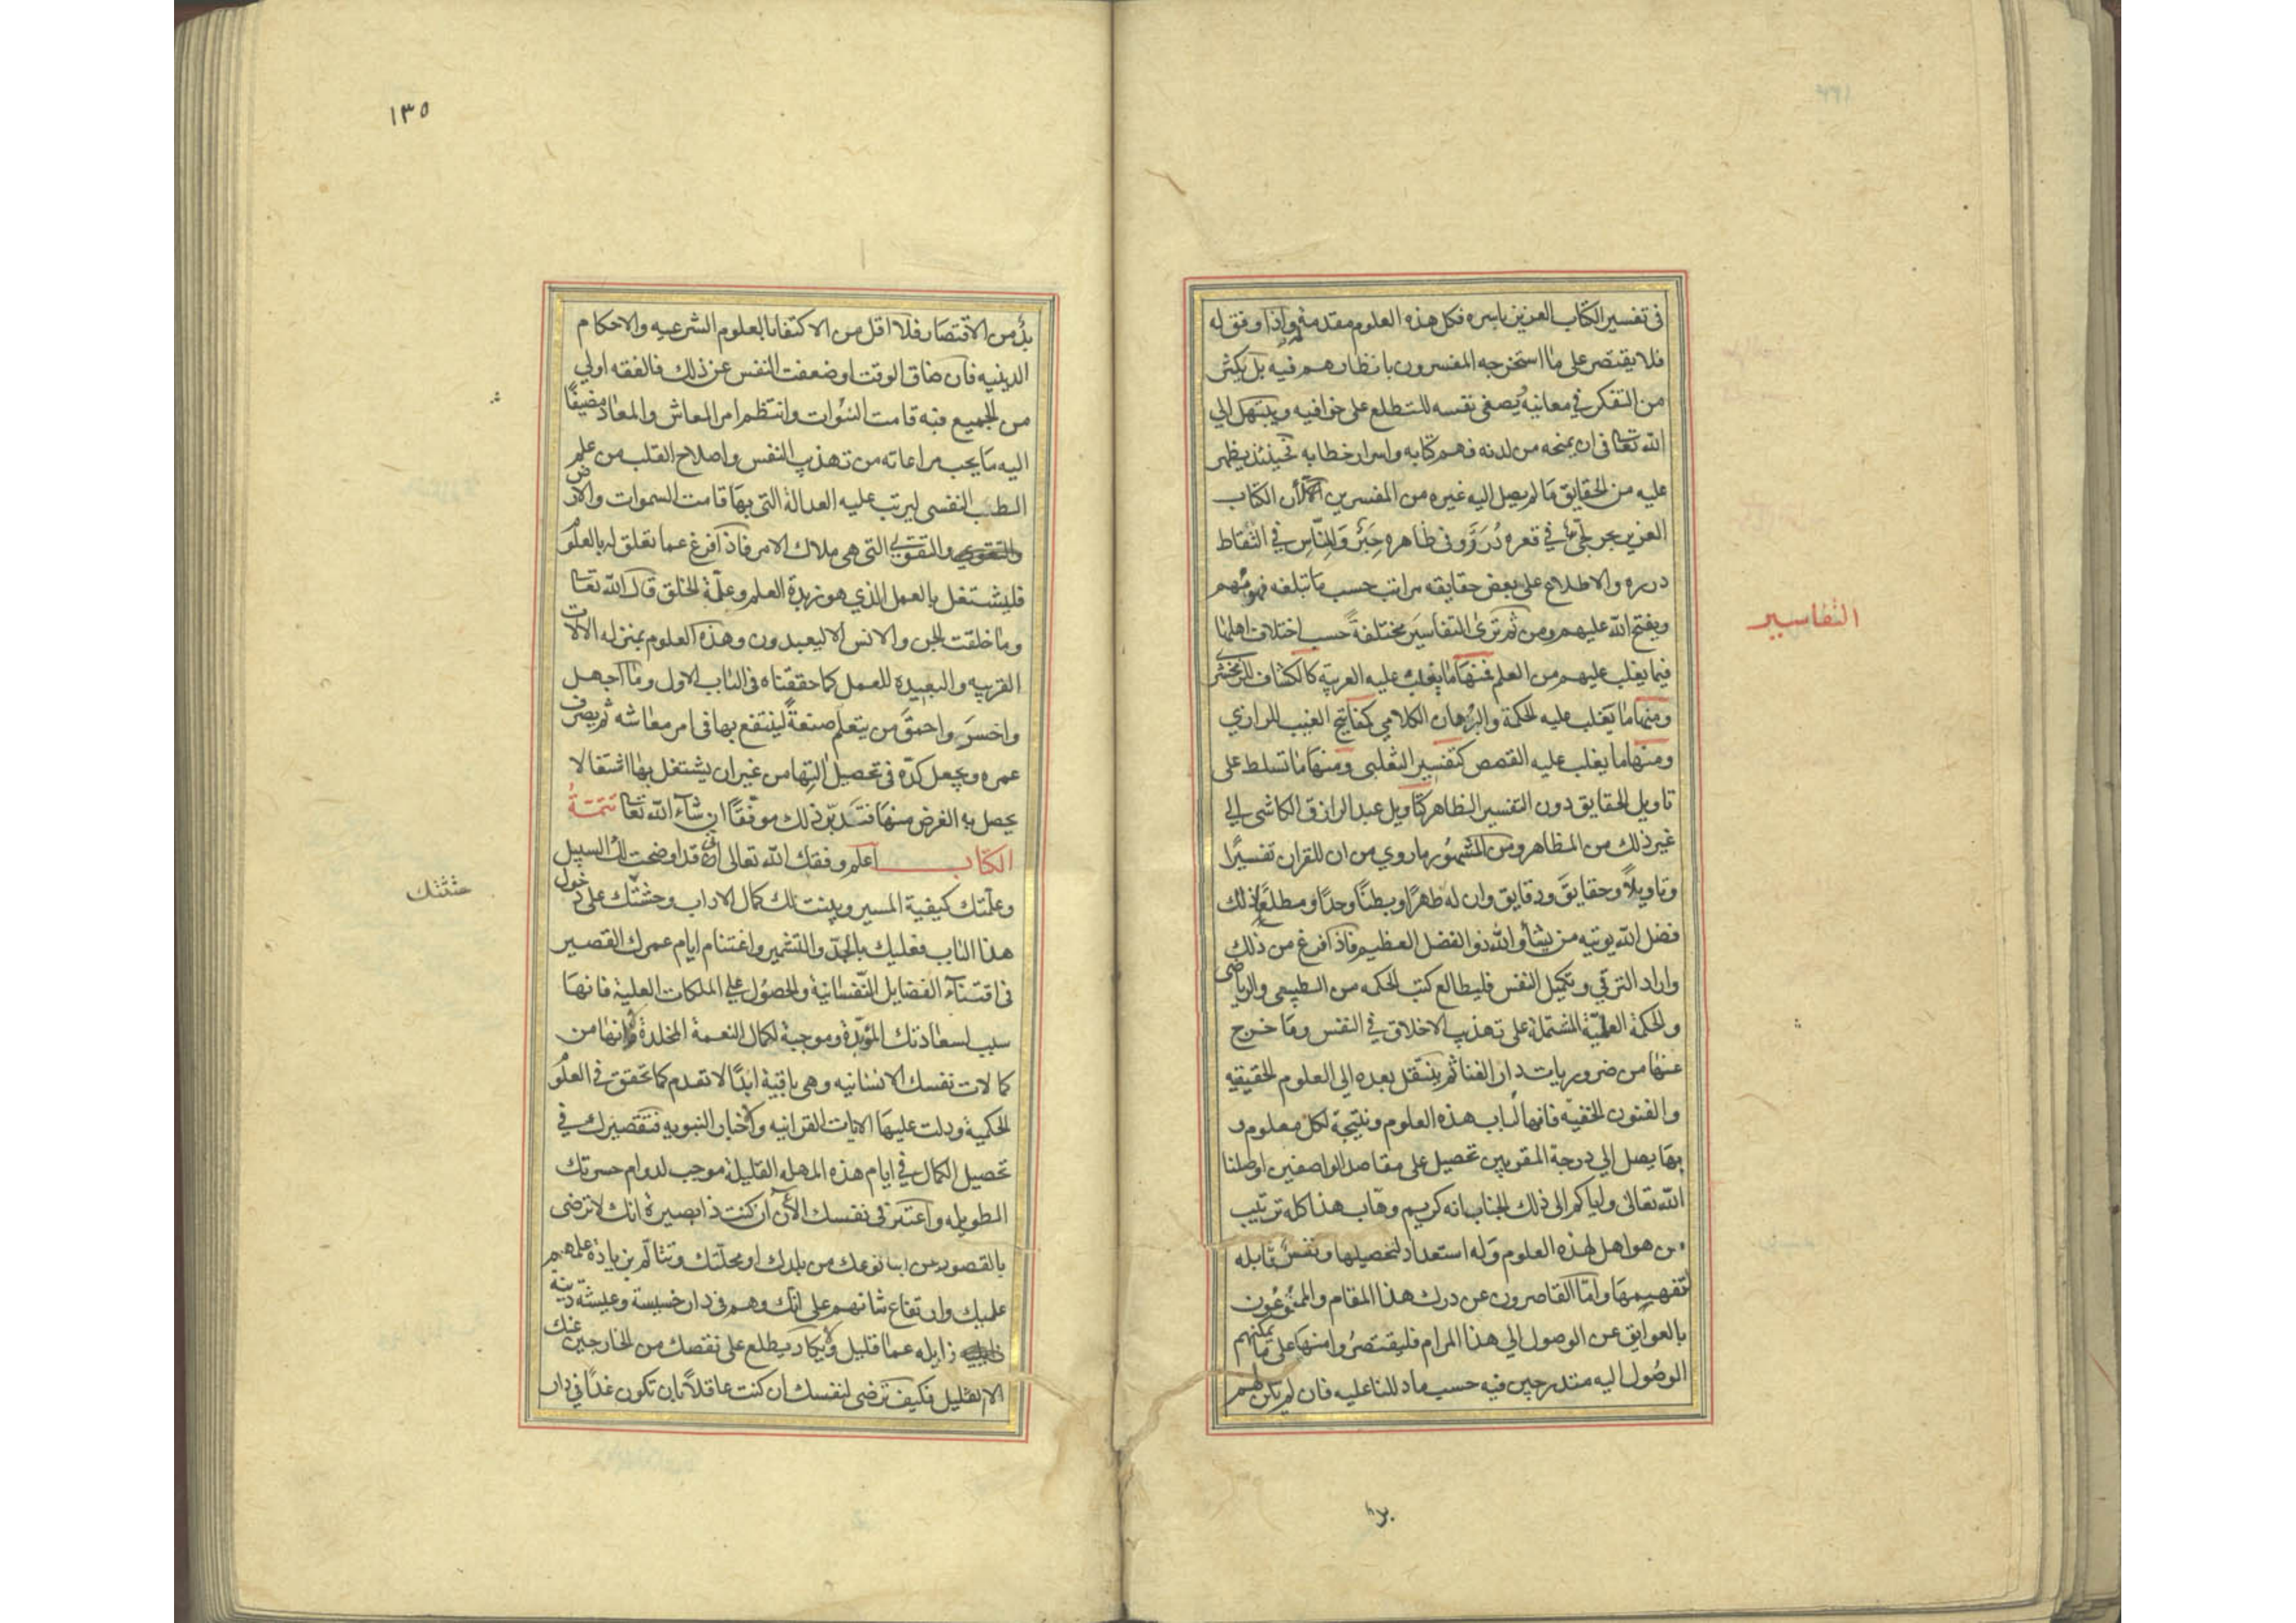 في تفسير الكتاب العزيز باسره فكل هذه العلوم مقدمة له واذا وفق له
فلا يقتصر على ما استخرجه المفسرون بانظارهم فيه بل يكثر
من التفكر في معانيه ويصفى نفسه للتطلع على خوافيه ويبتهل الي
الله تعالى في ان يمنحه من لدنه فهم كتابه واسرار خطابه فحينئذ يظهر
عليه من الحقايق ما لم يصل اليه غيره من المفسرين لأن الكتاب
العزيز بحر لجي في قعره درر وفي ظاهره خبر وللناس في التقاط
درره والاطلاع على بعض حقايقه مراتب حسب ما تبلغه فهومهم
ويفتح الله عليهم ومن ثم ترى التفاسير مختلفة حسب اختلاف اهلها
التفاسير
فيما يغلب عليهم من العلم فمنها ما يغلب عليه العربية كالكشاف للزمخشري
ومنها ما يغلب عليه الحكمة والبرهان الكلامي كمفاتيح الغيب للرازي
ومنها ما يغلب عليه القصص كتفسير الثعلبي ومنها ما تسلط على
تاويل الحقايق دون التفسير الظاهر كتاويل عبد الرازق الكاشي الي
غير ذلك من المظاهر ومن المشهور ما روي من ان للقران تفسيرًا
وتاويلاً وحقايق ودقايق وان له ظهرًا وبطنًا وحدًا ومطلعًا ذلك
فضل الله يوتيه من يشاء والله ذو الفضل العظيم فاذا فرغ من ذلك
واراد الترقي وتكميل النفس فليطالع كتب الحكمه من الطبيعي والرياضي
والحكمة العلمية المشتملة على تهذيب الاخلاق في النفس وما خرج
عنها من ضروريات دار الفنا ثم ينتقل بعده الي العلوم الحقيقيه
والفنون الخفيه فانها لباب هذه العلوم ونتيجة لكل معلوم و
بها يصل الي درجة المقربين تحصيل على مقاصد الواصفين اوصلنا
الله تعالى واياكم الى ذلك الجناب انه كريم وهاب هذا كله ترتيب
من هو اهل لهذه العلوم وله استعداد لتحصيلها ونفس قابله
لتفهيمها واما القاصرون عن درك هذا المقام والممنوعون
بالعوايق عن الوصول الي هذا المرام فليقتصروا منها على ما يمكنهم
الوصول اليه متدرجين فيه حسب ما دللنا عليه فان لم يكن لهم
بد
١٣٥
بد من الاقتصار فلا اقل من الاكتفا بالعلوم الشرعيه والاحكام
الدينيه فان ضاق الوقت او ضعفت النفس عن ذلك فالفقه اولي
من الجميع فبه قامت النبوات وانتظم امر المعاش والمعاد مضيفًا
اليه ما يجب مراعاته من تهذيب النفس واصلاح القلب من علم
الطب النفسي ليرتب عليه العدالة التي بها قامت السموات والارض
والتقوي التي هي ملاك الامر فاذا فرغ عما تعلق له بالعلوم
فليشتغل بالعمل الذي هو زبدة العلم وعلة الخلق قال الله تعالى
وما خلقت الجن والانس الا ليعبدون وهذه العلوم بمنزله الالات
القريبه والبعيده للعمل كما حققناه في الباب الاول وما اجهل
واخسر واحمق من يتعلم صنعةً لينتفع بها في امر معاشه ثم يصرف
عمره ويجعل كده في تحصيل التها من غير ان يشتغل بها اشتغالا
يحصل به الغرض منها فتدبر ذلك موفقًا ان شاء الله تعالى تتمة
الكتاب اعلم وفقك الله تعالى اني قد اوضحت لك السبيل
وعلمتك كيفية المسير وبينت لك كمال الاداب وحثثتك على دخول
حثثتك
هذا الباب فعليك بالجد والتشمير واغتنام ايام عمرك القصير
في اقتناء الفضايل النفسانية والحصول على الملكات العلية فانها
سبب لسعادتك المؤبدة وموجبة لكمال النعمة المخلدة فانها من
كمالات نفسك الانسانيه وهي باقية ابدًا لا تعدم كما تحقق في العلوم
الحكمية ودلت عليها الايات القرانيه والاخبار النبويه فتقصيرك في
تحصيل الكمال في ايام هذه المهله القليلة موجب لدوام حسرتك
الطويله واعتبر في نفسك الأن ان كنت ذا بصيرة انك لا ترضى
بالقصور عن ابنا نوعك من بلدك او محلتك وتتالم بزيادة علمهم
علي علمك وارتفاع شانهم على شانك وهم في دار خسيسة وعيشه دنيه
زايله عما قليل ولا يكاد يطلع على نقصك من الخارجين عنك
الا القليل فكيف ترضى لنفسك ان كنت عاقلاً بان تكون غدًا في دار